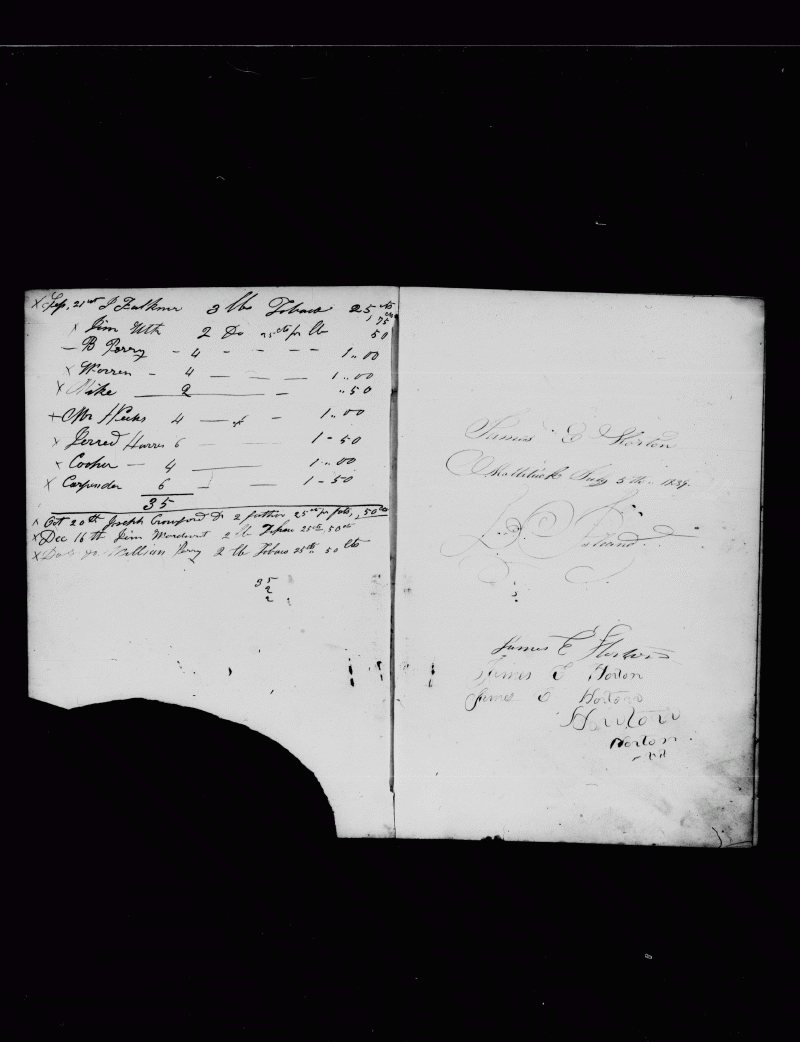 x Sep, 21st J Falkner 3 lb Tobaco 25 cts
, 75
x Jim Uth 2 Do 25 cts pr lb 50
— B Perry - 4 - - - - 1 ,, 00
x Worren - 4 - - - 1 ,, 00
x Mike - 2 - - ,, 50
+ Mr Weeks 4 - - 1 ,, 00
x Jerred Harris 6 - - 1 - 50
x Cooher - 4 - 1 ,, 00
x Carpender 6 - - 1 - 50
35
x Oct 20th Joseph Crawford Dr 2 25 cts pr , 50 cts
x Dec 16th Jim 2 lb 25 cts 50 cts
x William Perry 2 lb Tobaco 25 cts 50 cts
35
2
2
James E Horton
July 5th - 1839.
James E Horton
James E Horton
James E Horton
Horton
Horton